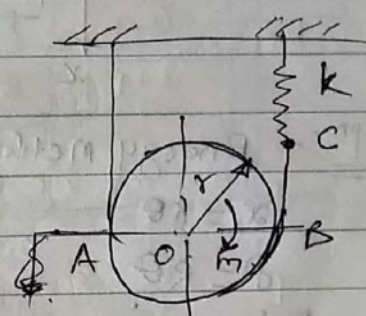 k
C
r
A O m B